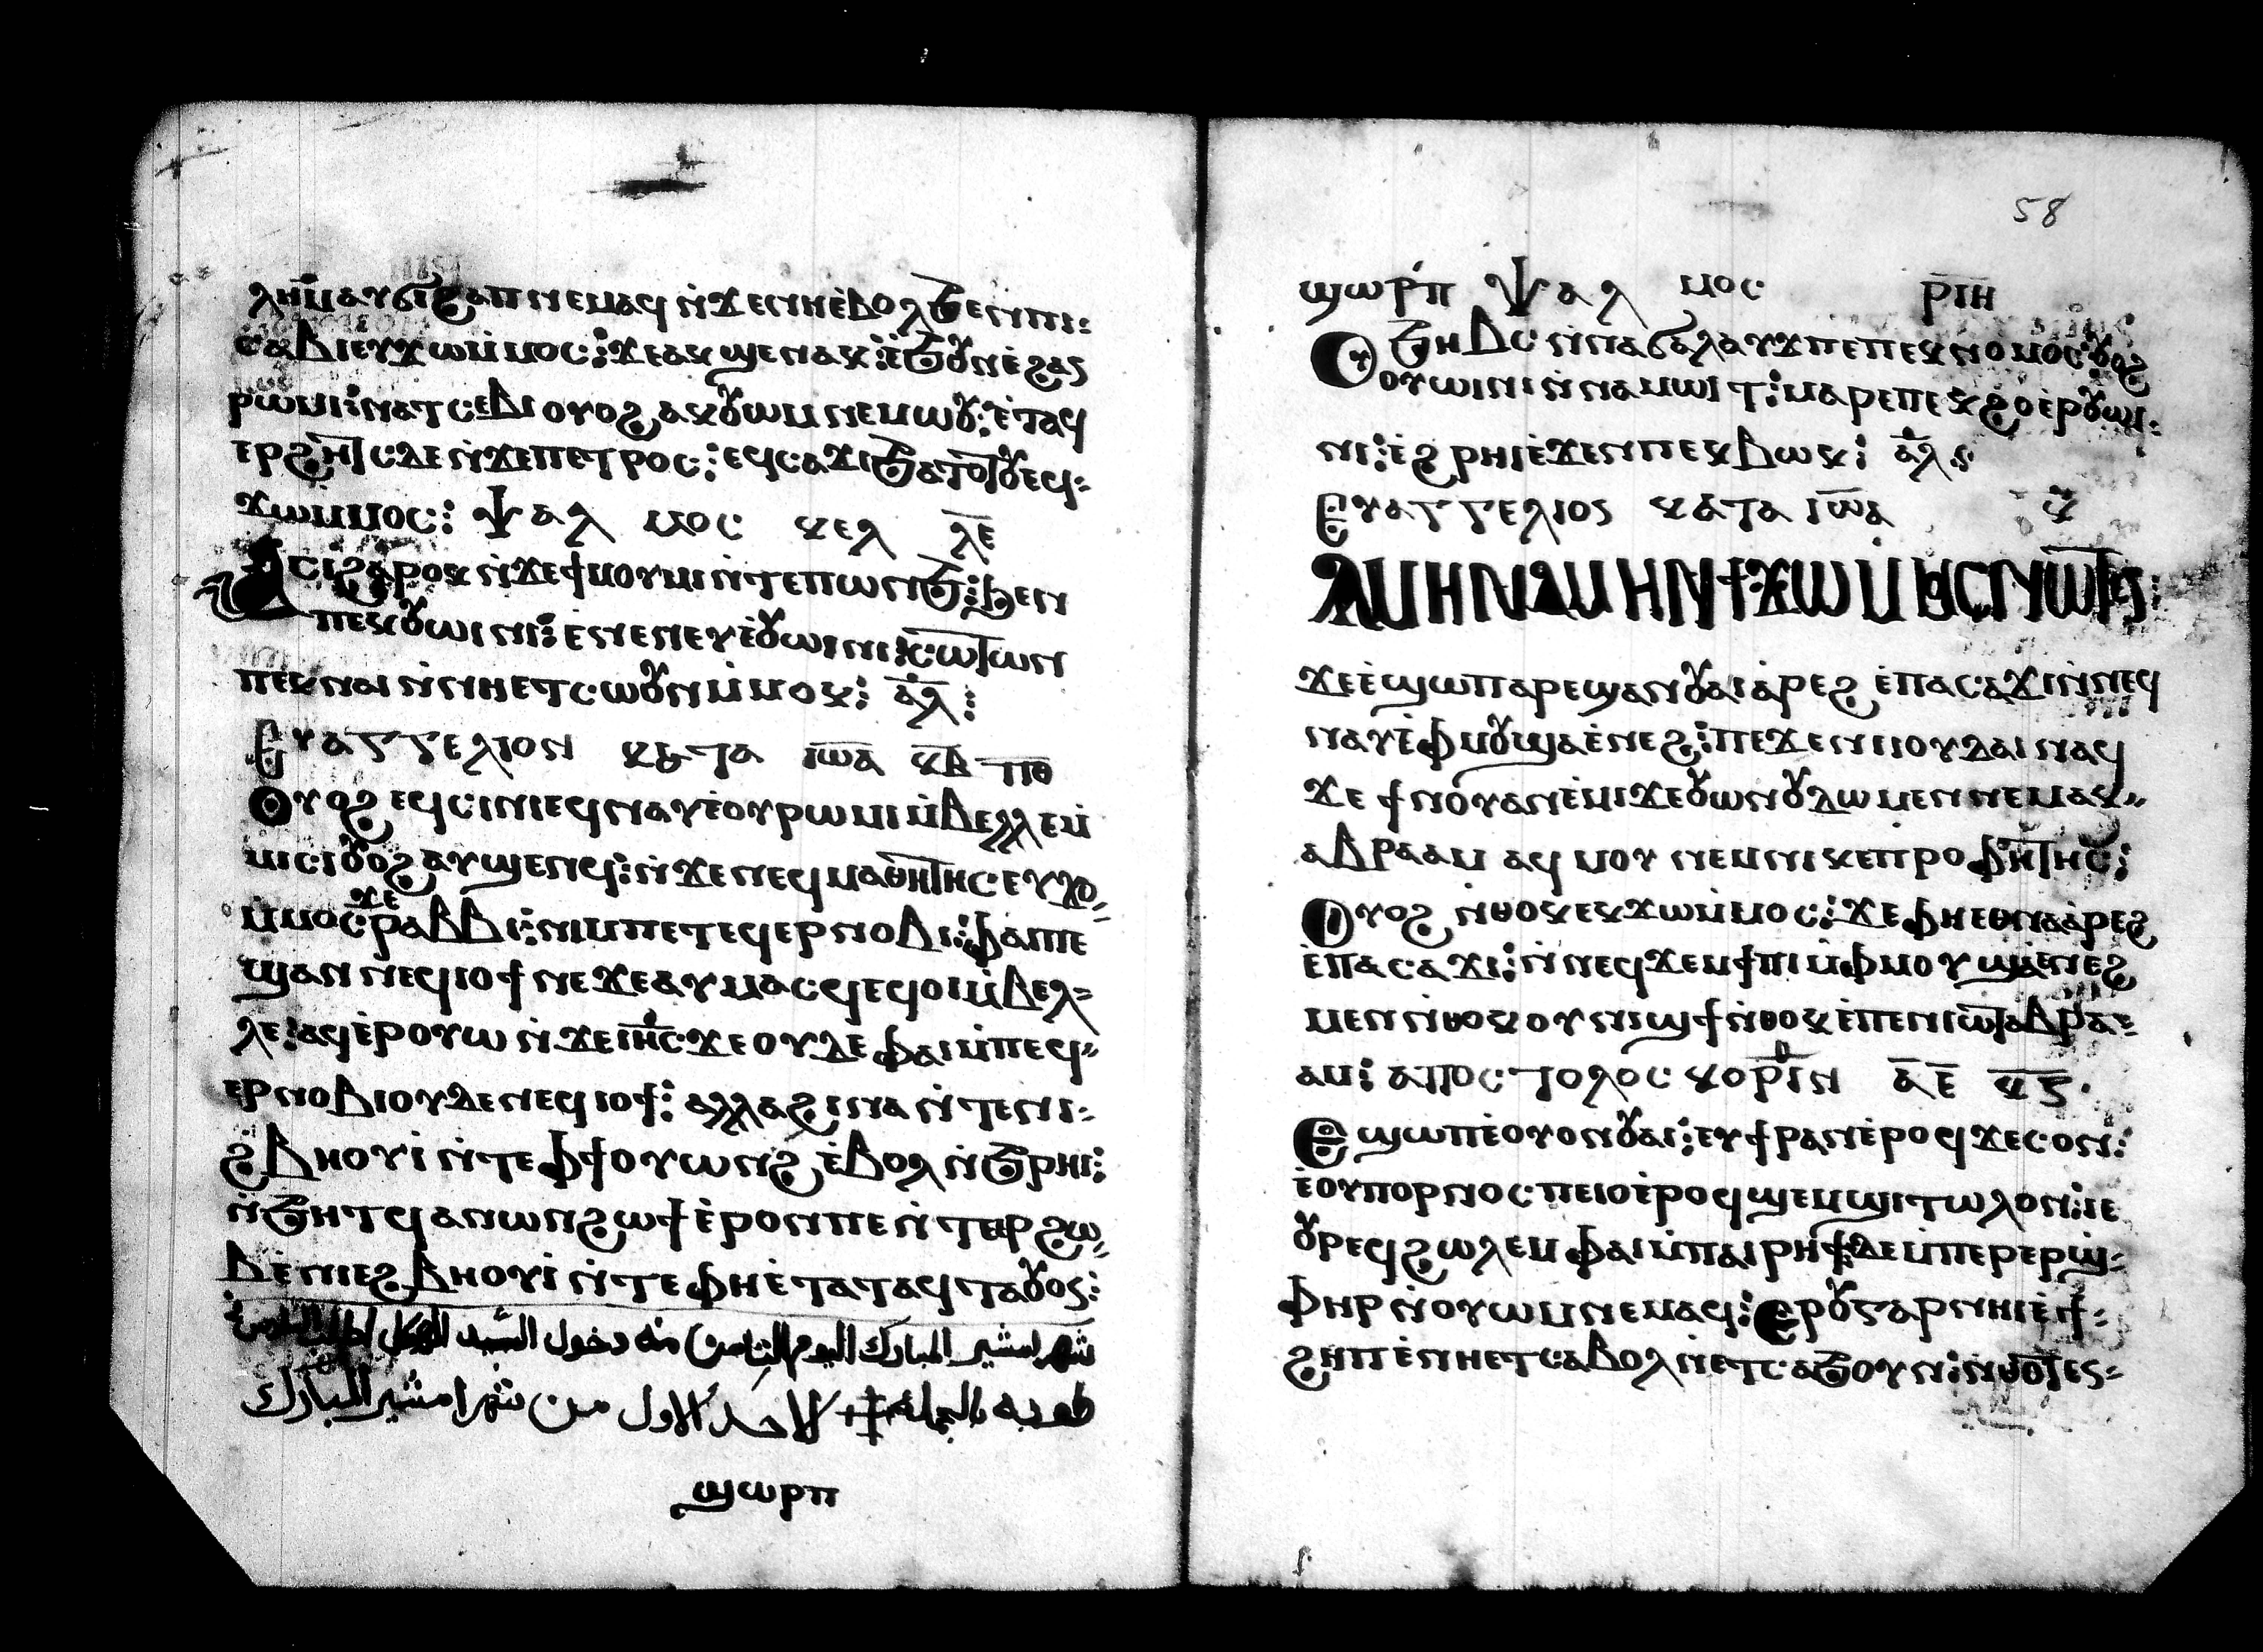 ⲗⲏⲙ ⲁⲩϭⲓϩⲁⲡ ⲛⲉⲙⲁϥ ⲛ̀ϫⲉⲛⲏⲉ̀ⲃⲟⲗϧⲉⲛⲡⲓ:
ⲥⲉⲃⲓ ⲉⲩϫⲱⲙ̀ⲙⲟⲥ: ϫⲉⲁⲕϣⲉⲛⲁⲕ: ⲉ̀ϧⲟⲩⲛⲉ̀ϩⲁⲛ
ⲣⲱⲙⲓ: ⲛⲁⲧⲥⲉⲃⲓ ⲟⲩⲟϩ ⲁⲕⲟⲩⲱⲙ ⲛⲉⲙⲱⲟⲩ: ⲉ̀ⲧⲁϥ
ⲉⲣϩⲏⲧⲥ ⲇⲉ ⲛ̀ϫⲉⲡⲉⲧⲣⲟⲥ: ⲉϥⲥⲁϫⲓ ϧⲁⲧⲟⲧⲟⲩ ⲉϥ-
ϫⲱⲙⲙⲟⲥ: ⲯⲁⲗⲙⲟⲥ ⲕⲉⲗ ⲗ̅ⲉ̅
ⲁⲥⲓϩⲁⲣⲟⲕ ⲛ̀ϫⲉϯⲙⲟⲩⲙⲓ ⲛ̀ⲧⲉⲡⲱⲛϧ: ϧⲉⲛ
ⲡⲉⲕⲟⲩⲱⲓⲛⲓ: ⲉⲛⲉⲛⲉⲩⲉ̀ⲟⲩⲱⲓⲛⲓ: ⲥⲱⲧⲱⲛ
ⲡⲉⲕⲛⲁⲓ ⲛ̀ⲛⲏⲉⲧⲥⲱⲟⲩⲛ ⲙ̀ⲙⲟⲕ: ⲁ̅ⲗ̅:
Ⲉⲩⲁⲅⲅⲉⲗⲓⲟⲛ ⲕⲁⲧⲁ ⲓⲱ̅ⲁ̅ ⲕ̅ⲃ̅ ⲡ̅ⲑ̅
Ⲟⲩⲟϩ ⲉϥⲥⲓⲛⲓ ⲉϥⲛⲁⲩⲉ̀ⲟⲩⲣⲱⲙⲓ ⲙ̀ⲃⲉⲗⲗⲉ ⲙ̀
ⲙⲓⲥⲓ ⲟⲩⲟϩ ⲁⲩϣⲉⲛϥ: ⲛ̀ϫⲉⲛⲉϥⲙⲁⲑⲏⲧⲏⲥ ⲉⲩϫⲟ,
ⲙⲙⲟⲥ ϫⲉ ⲣⲁⲃⲃⲓ: ⲛⲓⲙ ⲡⲉⲧⲉϥⲉⲣⲛⲟⲃⲓ: ⲫⲁⲓⲡⲉ
ϣⲁⲛ ⲛⲉϥⲓⲟϯ ⲛⲉ ϫⲉⲁⲩⲙⲁⲥϥ ⲉϥⲟⲓ ⲙ̀ⲃⲉⲗ-
ⲗⲉ: ⲁϥⲉ̀ⲣⲟⲩⲱ ⲛ̀ϫⲉⲓⲏ̅ⲥ̅: ϫⲉ ⲟⲩⲇⲉ ⲫⲁⲓ ⲙ̀ⲡⲉϥ-
ⲉⲣⲛⲟⲃⲓ ⲟⲩⲇⲉ ⲛⲉϥⲓⲟϯ: ⲁⲗⲗⲁ ϩⲓⲛⲁ ⲛ̀ⲧⲉⲛⲓ:
ϩⲃⲏⲟⲩⲓ̀ ⲛ̀ⲧⲉ ⲫϯ ⲟⲩⲱⲛϩ ⲉ̀ⲃⲟⲗ ⲛ̀ϧⲣⲏⲓ:
ⲛ̀ϧⲏⲧϥ ⲁⲛⲱⲛ ϩⲱϯ ⲉ̀ⲣⲟⲛⲡⲉ ⲛ̀ⲧⲉⲣϩⲱ
ⲃ ⲉ̀ⲛⲓⲉϩⲃⲏⲟⲩⲓ̀ ⲛ̀ⲧⲉ ⲫⲏⲉ̀ⲧⲁⲧⲁϥⲧⲁⲟⲩⲟⲓ:
شهر امشير المبارك اليوم الثامن منه دخول السيد الهيكل
طوبه بالجمله الاحد الاول من شهر امشير المبارك
ϣⲱⲣⲡ
58
ϣⲱⲣⲡ ⲯⲁⲗⲙⲟⲥ ⲣ̅ⲓ̅ⲏ̅
Ⲟⲩϧⲏⲃⲥ ⲛ̀ⲛⲁϭⲁⲗⲁⲩϫ ⲡⲉ ⲡⲉⲕⲛⲟⲙⲟⲥ: ⲟⲩⲟϩ
ⲟⲩⲱⲓⲛⲓ ⲛ̀ⲛⲁⲙⲱⲓⲧ: ⲙⲁⲣⲉⲡⲉⲕϩⲟ ⲉ̀ⲣⲟⲩⲱⲓ:
ⲛⲓ: ⲉ̀ϩⲣⲏⲓ ⲉ̀ϫⲉⲛⲡⲉⲕⲃⲱⲕ: ⲁ̅ⲗ̅:
Ⲉⲩⲁⲅⲅⲉⲗⲓⲟⲛ ⲕⲁⲧⲁ ⲓⲱ̅ⲁ̅ ⲕ̅
ⲀⲘⲎⲚ ⲀⲘⲎⲚ ϮϪⲰⲘⲘⲞⲤ ⲚⲰⲦⲈⲚ:
ϫⲉ ⲉ̀ϣⲱⲡ ⲁⲣⲉϣⲁⲛⲟⲩⲁⲓ ⲁ̀ⲣⲉϩ ⲉ̀ⲡⲁⲥⲁϫⲓ ⲛ̀ⲛⲉϥ
ⲛⲁⲩ ⲉ̀ⲫⲙⲟⲩ ϣⲁⲉ̀ⲛⲉϩ: ⲡⲉϫⲉ ⲛⲓⲓⲟⲩⲇⲁⲓ ⲛⲁϥ
ϫⲉ ϯⲛⲟⲩ ⲁⲛⲉ̀ⲙⲓ ϫⲉ ⲟⲩⲱⲛ ⲟⲩⲇⲱⲙⲉⲛ ⲛⲉⲙⲁⲕ"
ⲁⲃⲣⲁⲁⲙ ⲁϥⲙⲟⲩ ⲛⲉⲙ ⲛⲓⲕⲉⲡⲣⲟⲫⲏⲧⲏⲥ:
Ⲟⲩⲟϩ ⲛ̀ⲑⲟⲕ ⲉⲕϫⲱⲙ̀ⲙⲟⲥ: ϫⲉ ⲫⲏⲉⲑⲛⲁⲁ̀ⲣⲉϩ
ⲉ̀ⲡⲁⲥⲁϫⲓ: ⲛ̀ⲛⲉϥϫⲉⲙϯⲡⲓ ⲙ̀ⲫⲙⲟⲩ ϣⲁⲉ̀ⲛⲉϩ
ⲙⲉⲛ ⲛ̀ⲑⲟⲕ ⲟⲩⲛⲓϣϯ ⲛ̀ⲑⲟⲕ ⲉ̀ⲡⲉⲛⲓⲱⲧ ⲁⲃⲣⲁ-
ⲁⲙ: ⲁⲡⲟⲥⲧⲟⲗⲟⲥ ⲕⲟⲣⲓⲛ ⲁ̅ ⲉ̅ ⲕ̅ⲋ̅
Ⲉϣⲱⲡ ⲉ̀ⲟⲩⲟⲛ ⲟⲩⲁⲓ: ⲉⲩϯⲣⲁⲛ ⲉ̀ⲣⲟϥ ϫⲉ ⲥⲟⲛ:
ⲉ̀ⲟⲩⲡⲟⲣⲛⲟⲥ ⲡⲉ ⲓⲉ ⲟⲩⲣⲉϥϣⲉⲙϣⲓⲧⲱⲗⲟⲛ: ⲓⲉ
ⲟⲩⲣⲉϥϩⲱⲗⲉⲙ ⲫⲁⲓ ⲙ̀ⲡⲁⲓⲣⲏϯ ⲇⲉ ⲙ̀ⲡⲉⲣⲉⲣϣ̀:
ⲫⲏⲣ ⲛ̀ⲟⲩⲱⲙ ⲛⲉⲙⲁϥ: ⲉⲣⲟⲩⲅⲁⲣ ⲛⲏⲓ ⲉ̀ϯ-
ϩⲁⲡ ⲉ̀ⲛⲏⲉⲧⲥⲁⲃⲟⲗ ⲛⲉⲧⲥⲁϧⲟⲩⲛ: ⲛ̀ⲑⲱⲧⲉⲛ-